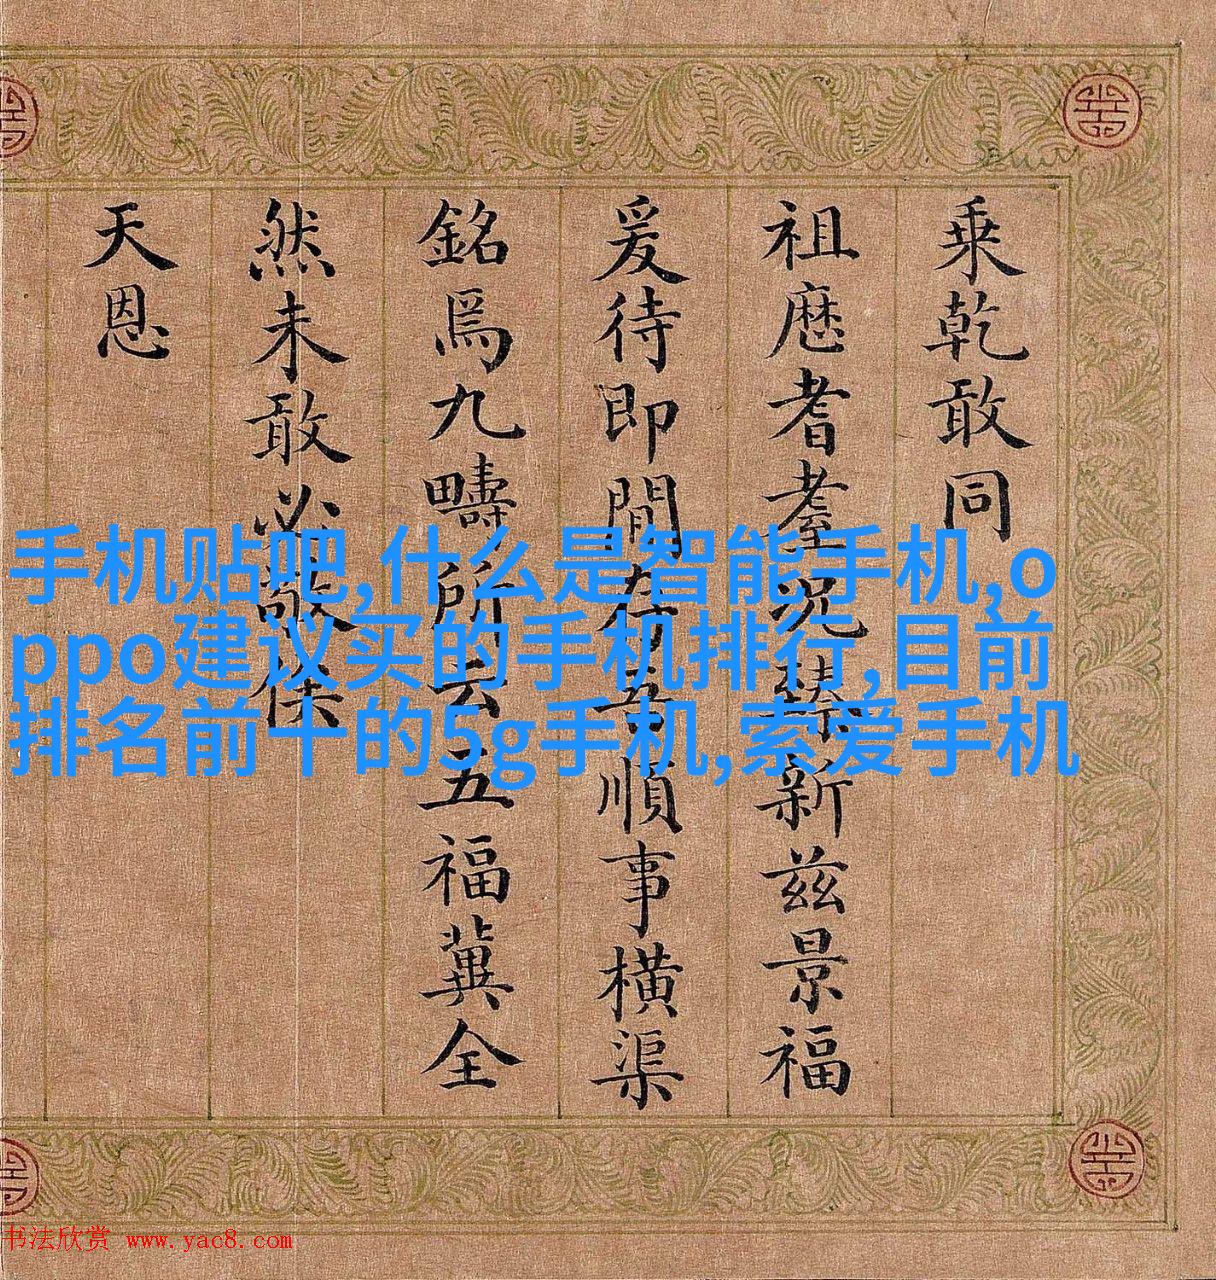 乗乾敢同
祖歷耆耋況臻新茲景福
爰待即間存吾順事橫渠
銘爲九疇所云五福冀全
然未敢必敬俟
天恩
手机贴吧,什么是智能手机,o
ppo建议买的手机排行,目前
排名前十的5g手机,索爱手机
书法欣赏 www.yac8.com